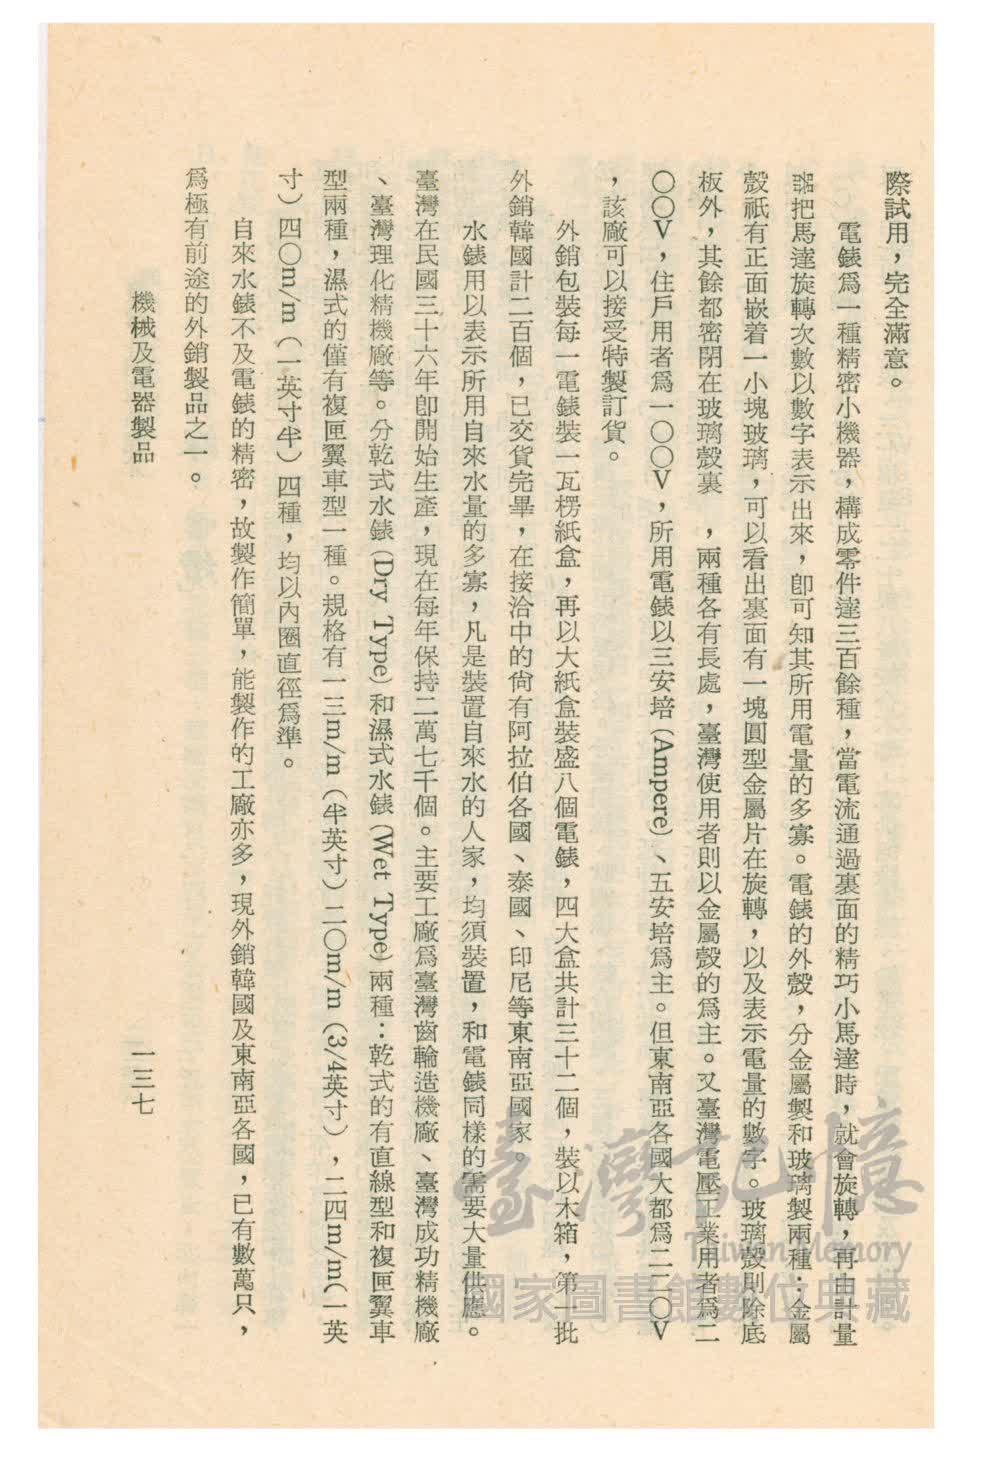 際試用，完全滿意。
電錶爲一種精密小機器，構成零件達三百餘種，當電流通過裏面的精巧小馬達時，就會旋轉，再由計量
器把馬達旋轉次數以數字表示出來，卽可知其所用電量的多寡。電錶的外殼，分金屬製和玻璃製兩種：金屬
殼祇有正面嵌着一小塊玻璃，可以看出裏面有一塊圓型金屬片在旋轉，以及表示電量的數字。玻璃殼則除底
板外，其餘都密閉在玻璃殼裏　，兩種各有長處，臺灣使用者則以金屬殼的爲主。又臺灣電壓工業用者爲二
〇〇V，住戶用者爲一〇〇V，所用電錶以三安培(Ampere)、五安培爲主。但東南亞各國大都爲二二〇V
，該廠可以接受特製訂貨。
外銷包裝每一電錶裝一瓦楞紙盒，再以大紙盒裝盛八個電錶，四大盒共計三十二個，裝以木箱，第一批
外銷韓國計二百個，已交貨完畢，在接洽中的尙有阿拉伯各國、泰國、印尼等東南亞國家。
水錶用以表示所用自來水量的多寡，凡是裝置自來水的人家，均須裝置，和電錶同樣的需要大量供應。
臺灣在民國三十六年卽開始生產，現在每年保持二萬七千個。主要工廠爲臺灣齒輪造機廠、臺灣成功精機廠
、臺灣理化精機廠等。分乾式水錶(Dry Type)和濕式水錶(Wet Type)兩種：乾式的有直線型和複匣翼車
型兩種，濕式的僅有複匣翼車型一種。規格有一三m/m（半英寸）二〇m/m（3/4英寸），二四m/m(一英
寸）四〇m/m（一英寸半）四種，均以內圈直徑爲準。
自來水錶不及電錶的精密，故製作簡單，能製作的工廠亦多，現外銷韓國及東南亞各國，已有數萬只，
爲極有前途的外銷製品之一。
機械及電器製品
一三七
臺灣記憶
Taiwan Memory
國家圖書館數位典藏